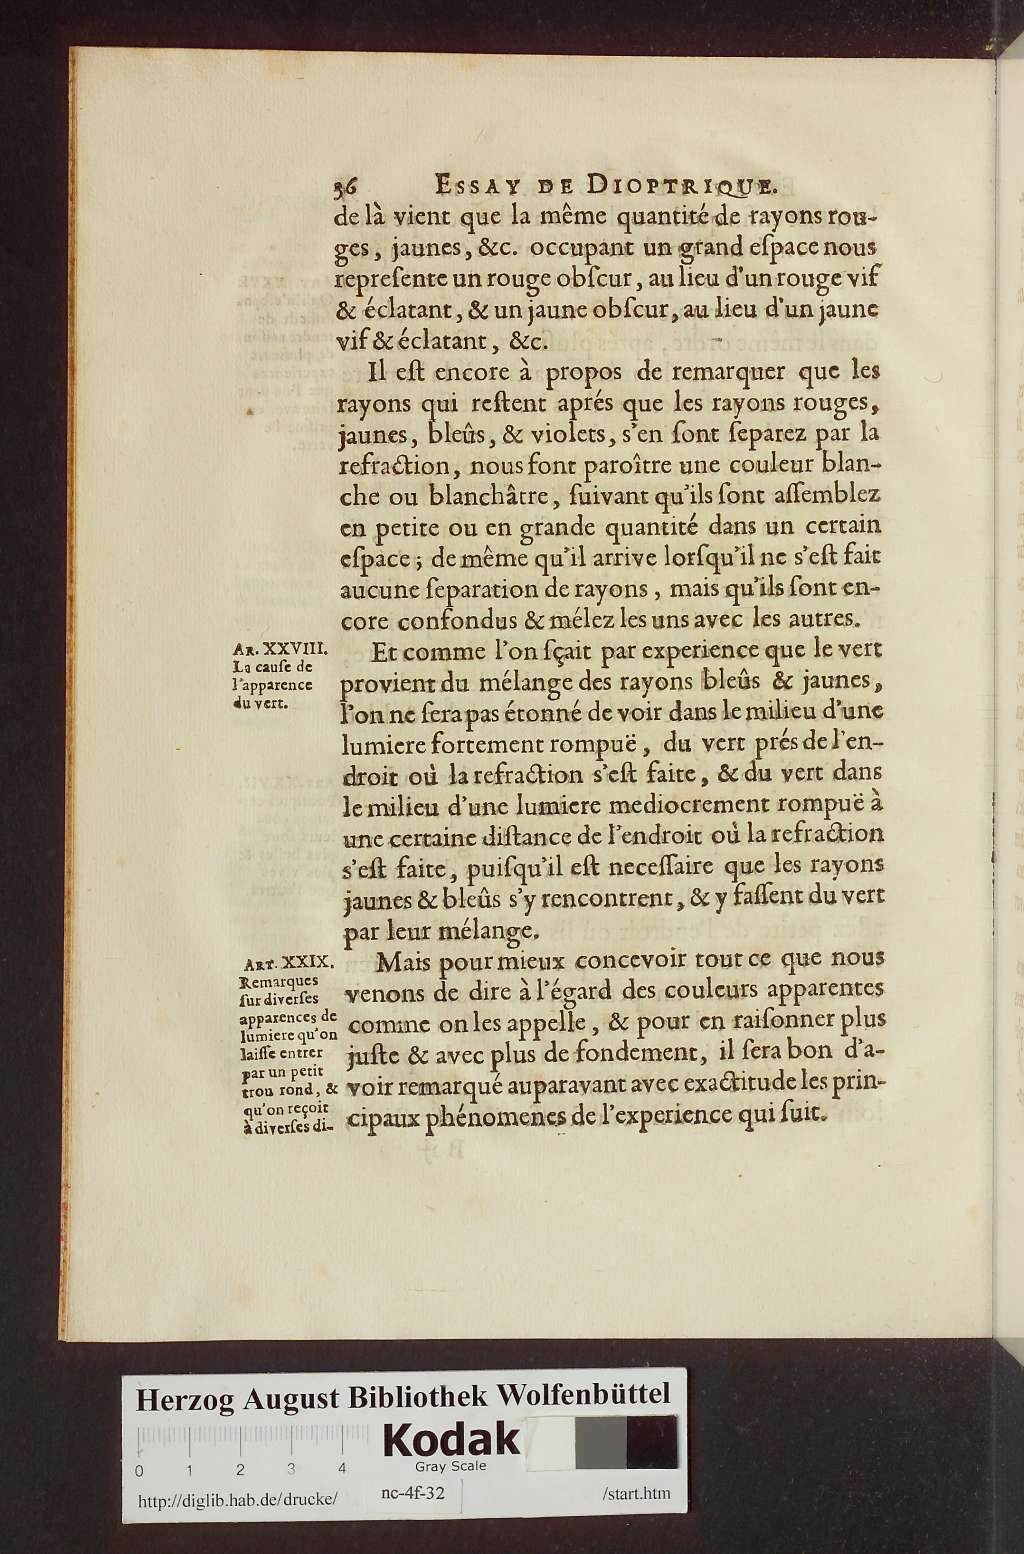 36 ESSAY DE DIOPTRIQUE.
de là vient que la même quantité de rayons rou-
ges, jaunes, &c. occupant un grand eſpace nous
repreſente un rouge obſcur, au lieu d'un rouge vif
& éclatant, & un jaune obſcur, au lieu d'un jaune
vif & éclatant, &c.
Il eſt encore à propos de remarquer que les
rayons qui reſtent aprés que les rayons rouges,
jaunes, bleûs, & violets, s'en ſont ſeparez par la
refraction, nous font paroître une couleur blan-
che ou blanchâtre, ſuivant qu'ils ſont aſſemblez
en petite ou en grande quantité dans un certain
eſpace; de même qu'il arrive lorſqu'il ne s'eſt fait
aucune ſeparation de rayons, mais qu'ils ſont en-
core confondus & mélez les uns avec les autres.
AR. XXVIII.
La cauſe de
l'apparence
du vert.
Et comme l'on ſçait par experience que le vert
provient du mélange des rayons bleûs & jaunes,
l'on ne ſera pas étonné de voir dans le milieu d'une
lumiere fortement rompuë, du vert prés de l'en-
droit où la refraction s'eſt faite, & du vert dans
le milieu d'une lumiere mediocrement rompuë à
une certaine diſtance de l'endroit où la refraction
s'eſt faite, puiſqu'il eſt neceſſaire que les rayons
jaunes & bleûs s'y rencontrent, & y faſſent du vert
par leur mélange.
ART. XXIX.
Remarques
ſur diverſes
apparences de
lumiere qu'on
laiſſe entrer
par un petit
trou rond, &
qu'on reçoit
à diverſes di-
Mais pour mieux concevoir tout ce que nous
venons de dire à l'égard des couleurs apparentes
comme on les appelle, & pour en raiſonner plus
juſte & avec plus de fondement, il ſera bon d'a-
voir remarqué auparavant avec exactitude les prin-
cipaux phénomenes de l'experience qui ſuit.
Herzog August Bibliothek Wolfenbüttel
Kodak
Gray Scale
0 1 2 3 4
http://diglib.hab.de/drucke/ nc-4f-32 /start.htm